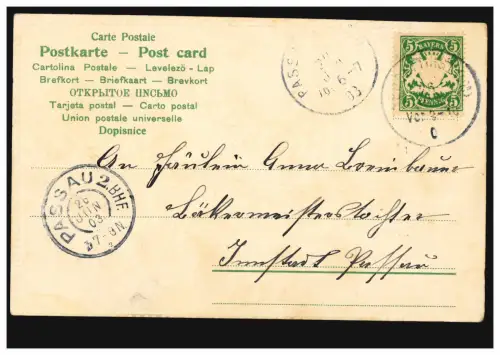 Carte Postale
Postkarte – Post card
Cartolina Postale – Levelező-Lap
Brefkort – Briefkaart – Brevkort
ОТКРЫТОЕ ПИСЬМО
Tarjeta postal – Carto postal
Union postale universelle
Dopisnice
PASS
6-7
03
BAYERN
5 5
5 PFENNIG 5
An Fräulein Anna
Bäkermeisterstochter
Innstadt Passau
PASSAU 2. BHF.
26
JUN
03
7-8N